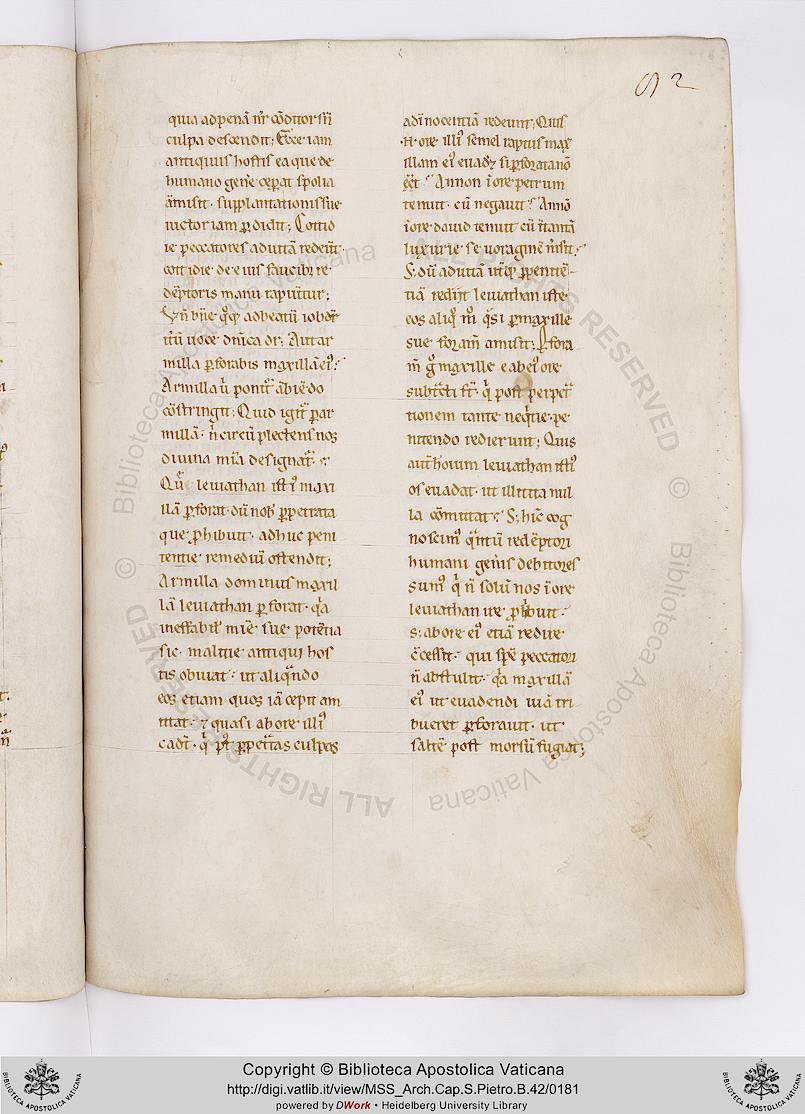 92
quia ad penā nr̄ cōditor sn̄
culpa descendit; Ecce iam
antiquus hostis ea que de
humano gen̄e cep̄at spolia
āmisit. supplantationis sue
victoriam p̄didit; Cottid
ie peccatores ad vitā redeūt.
cottidie de eius faucib; re
dēptoris manu rapiūtur;
milla p̄forabis maxillā ei⁹?
Armilla
cōstringit; Quid igit̄ p̄ ar
millā. n̄ circū plectens nos
divina mīa designat̄.
Qūe leviathan isti⁹ maxi
llā p̄forat. dū nob̄ p̄petrata
que p̄hibuit. adhuc peni
tentie remediū ostendit;
Armilla dominus maxil
lā leviathan p̄forat. q̄a
ineffabil̄ mīe sue potētia
sic. malitie antiqui hos
tis obviat. ut aliq̄ndo
eos etiam quos iā cepit am
ittat. ⁊ quasi ab ore illi⁹
cadt̄. q̄ pt̄ p̄pet̄tas culpas
ad īnocentiā redeunt; Quis
.n̄. ore illi⁹ semel raptus max̄
illam ei⁹ evad̄ēt si p̄forata nō
eēt? An non ī ore petrum
tenuit. cū negavit? An nō
ī ore david tenuit cū ī tantā
luxurie se voraginē mīsit?
S; dū ad vitā ut̄q; p̄ penitē
tiā redijt leviathan iste
eos aliq̄⁹ m̄ q̄si p̄ maxille
sue foram̄ amisit; P̄fora
m̄ g̊ maxille eab ei⁹ ore
subt̄cti st̄. q̄ post perpet̄
tionem tante neq̄tie. pe
nitendo redierunt; Quis
aut̄ hoīum leviathan isti⁹
os evadat. ut illicita nul
la cōmittat? S; hīc cog
noscim⁹ q̄ntū redēptori
humani gen̄is debitores
sum⁹ q̄ n̄ solū nos ī ore
leviathan ire p̄hibuit.
s; ab ore ei⁹ etiā redire
c̄cessit. qui spē peccatori
n̄ abstulit. q̄a maxillā
ei⁹ ut evadendi viā tri
bueret p̄foravit. ut
saltē post morsū fugiat;
Copyright © Biblioteca Apostolica Vaticana
http://digi.vatlib.it/view/MSS_Arch.Cap.S.Pietro.B.42/0181
powered by DWork • Heidelberg University Library
BIBLIOTECA APOSTOLICA VATICANA
BIBLIOTECA APOSTOLICA VATICANA
© Biblioteca Apostolica Vaticana ALL RIGHTS RESERVED
© Biblioteca Apostolica Vaticana ALL RIGHTS RESERVED